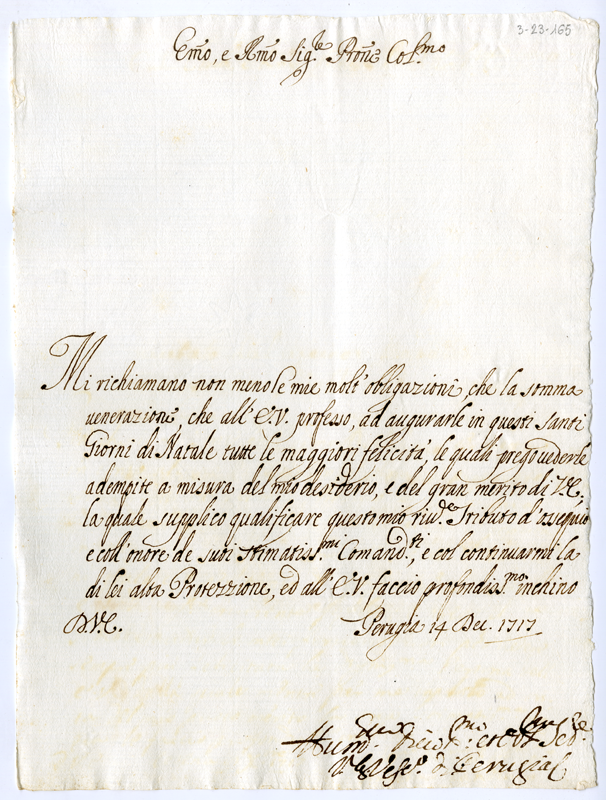 3-23-165
Em̃o, e Rm̃o Sig.re Pron̄e Col.mo
Mi richiamano non meno le mie molt' obligazioni, che la somma
venerazione, che all' E.V. professo, ad augurarle in questi santi
Giorni di Natale tutte le maggiori felicità, le quali prego vederle
adempite a misura del mio desiderio, e del gran merito di V.E.,
la quale supplico qualificare questo mio riv.e Tributo d'ossequio
e coll' onore de suoi stimatiss.mi Comand.ti, e col continuarmi la
di lei alta Protezzione, ed all' E.V. faccio profondiss.mo inchino
D.V.E.
Perugia 14 Dec. 1717
Hum.
di Perugia